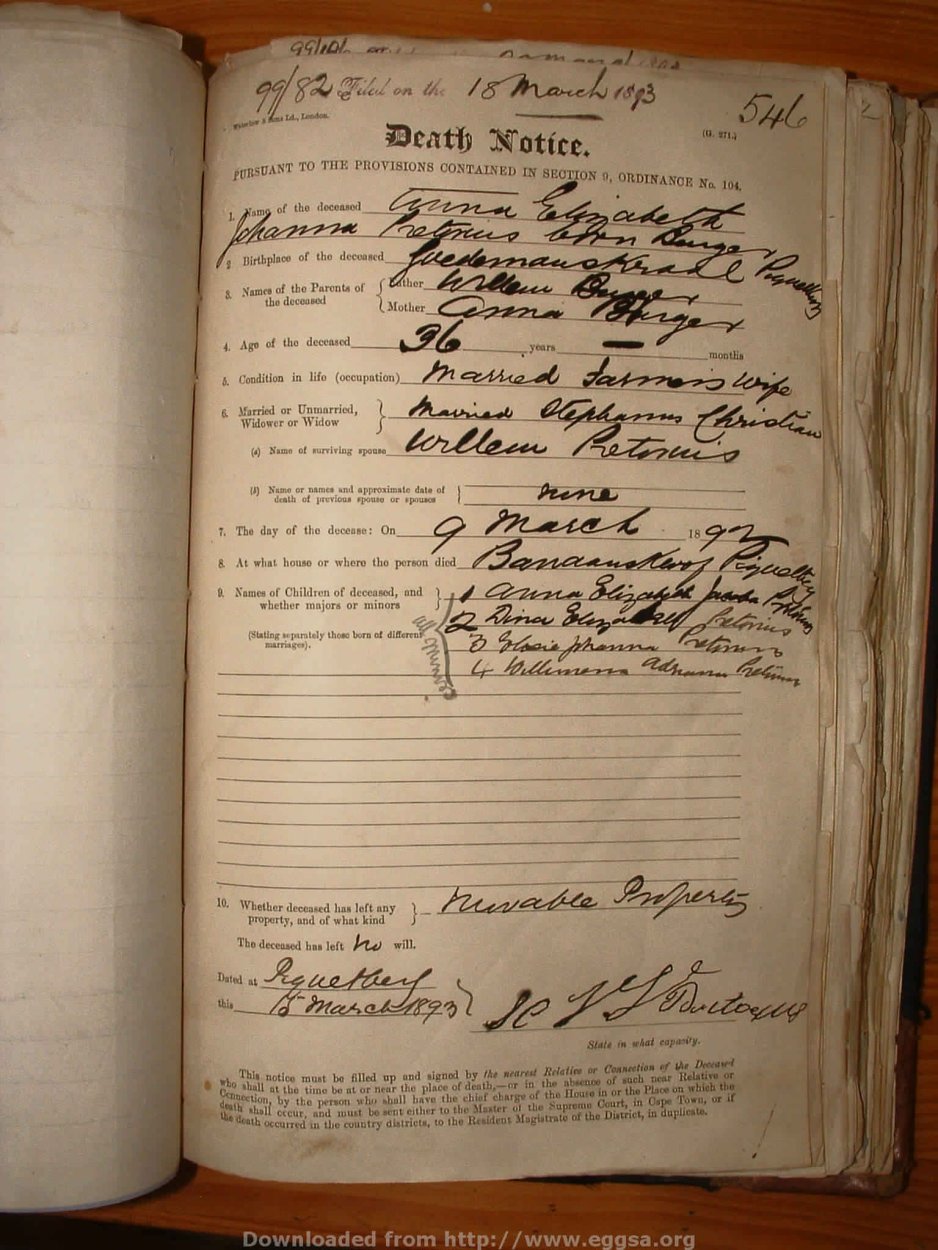 99/82 Filed on the 18 March 1893
546
Waterlow & Sons Ld., London.
(G. 271.)
Death Notice.
PURSUANT TO THE PROVISIONS CONTAINED IN SECTION 9, ORDINANCE No. 104.
1. Name of the deceased Anna Elizabeth
Johanna Pretorius born Burger
2. Birthplace of the deceased Goedemanskraal Piquetberg
3. Names of the Parents of the deceased { Father Willem Burger
Mother Anna Burger
4. Age of the deceased 36 years — months
5. Condition in life (occupation) Married Farmers wife
6. Married or Unmarried, Widower or Widow } Married Stephanus Christian
(a) Name of surviving spouse Willem Pretorius
(b) Name or names and approximate date of death of previous spouse or spouses } none
7. The day of the decease: On 9 March 1892
8. At what house or where the person died Piquetberg
9. Names of Children of deceased, and whether majors or minors } 1 Anna Elizabeth Jacoba Pretorius
2 Dina Elizabeth Pretorius
(Stating separately those born of different marriages).
3 Elsie Johanna Pretorius
4 Willemena Adriana Pretorius
all minors
10. Whether deceased has left any property, and of what kind } Movable Property
The deceased has left no will.
Dated at Piquetberg
this 15 March 1893
State in what capacity.
This notice must be filled up and signed by the nearest Relative or Connection of the Deceased
who shall at the time be at or near the place of death,—or in the absence of such near Relative or
Connection, by the person who shall have the chief charge of the House in or the Place on which the
death shall occur, and must be sent either to the Master of the Supreme Court, in Cape Town, or if
the death occurred in the country districts, to the Resident Magistrate of the District, in duplicate.
Downloaded from http://www.eggsa.org